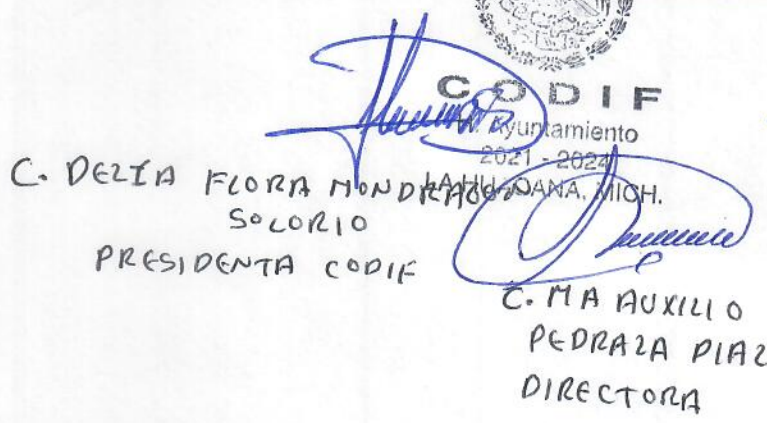 CODIF
H. Ayuntamiento
2021 - 2024
LA HUACANA, MICH.
C. DELIA FLORA MONDRAGON
SOLORIO
PRESIDENTA CODIF
C. MA AUXILIO
PEDRAZA DIAZ
DIRECTORA